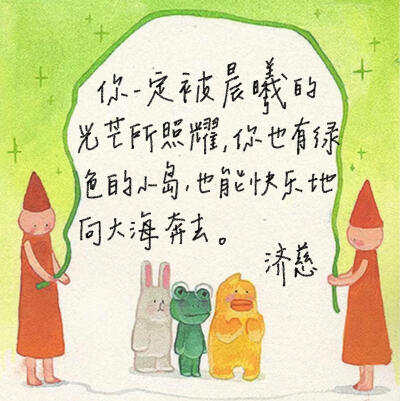 你一定被晨曦的
光芒所照耀,你也有绿
色的小岛,也能快乐地
向大海奔去。
济慈